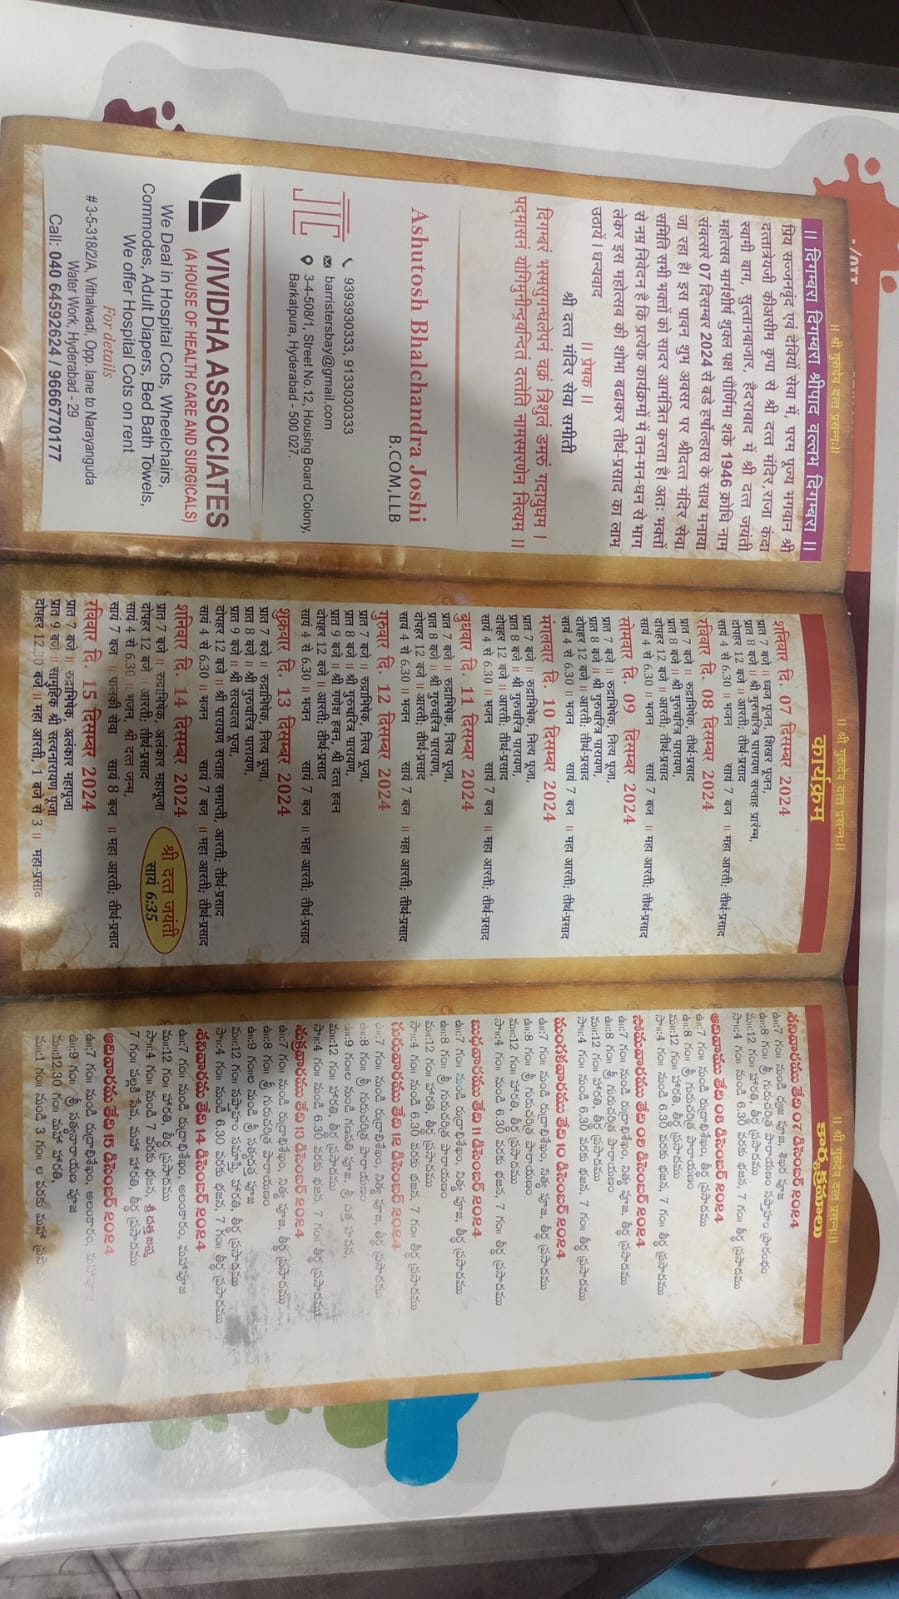 ॥ श्री गुरुदेव दत्त प्रसन्न:॥
॥ दिगम्बरा दिगम्बरा श्रीपाद वल्लभ दिगम्बरा ॥
प्रिय सज्जनवृंद एवं देवियों सेवा में, परम पुज्य भगवान श्री
दत्तात्रेयजी की असीम कृपा से श्री दत्त मंदिर, राजा कंदा
स्वामी बाग, सुल्तानबाजार, हैदराबाद में श्री दत्त जयंती
महोत्सव मार्गशीर्ष शुक्ल पक्ष पोर्णिमा शके 1946 क्रोधि नाम
संवत्सरे 07 दिसम्बर 2024 से बडे हर्षाल्हास के साथ मनाया
जा रहा है। इस पावन शुभ अवसर पर श्रीदत्त मंदिर सेवा
समिति सभी भक्तों को सादर आमंत्रित करता है। अतः भक्तों
से नम्र निवेदन है कि प्रत्येक कार्यक्रम में तन-मन-धन से भाग
लेकर इस महोत्सव की शोभा बढाकर तीर्थ-प्रसाद का लाभ
उठायें। धन्यवाद
॥ प्रेषक ॥
श्री दत्त मंदिर सेवा समीती
दिगम्बरं भस्मसुगन्धलेपनं चक्रं त्रिशुलं डमरुं गदायुधम ।
पद्मासनं योगिमुनीन्द्रवन्दितं दत्तेति नामस्मरणेन नित्यम ॥
Ashutosh Bhalchandra Joshi
B.COM,LLB
9393930333, 9133030333
barristersbay@gmail.com
3-4-508/1, Street No.12, Housing Board Colony,
Barkatpura, Hyderabad - 500 027.
VIVIDHA ASSOCIATES
(A HOUSE OF HEALTH CARE AND SURGICALS)
We Deal in Hospital Cots, Wheelchairs,
Commodes, Adult Diapers, Bed Bath Towels,
We offer Hospital Cots on rent
For details
# 3-5-318/2/A, Vithalwadi, Opp. lane to Narayanguda
Water Work, Hyderabad - 29
Call: 040 64592624 / 9666770177
॥ श्री गुरुदेव दत्त प्रसन्न:॥
कार्यक्रम
शनिवार दि. 07 दिसम्बर 2024
प्रात 7 बजे ॥ ध्वज पूजन, शिखर पूजन,
प्रात 8 बजे ॥ श्री गुरुचरित्र पारायण सप्ताह प्रारंभ,
दोपहर 12 बजे ॥ आरती; तीर्थ-प्रसाद
सायं 4 से 6.30 ॥ भजन सायं 7 बज ॥ महा आरती; तीर्थ-प्रसाद
रविवार दि. 08 दिसम्बर 2024
प्रात 7 बजे ॥ रुद्राभिषेक, तीर्थ-प्रसाद
प्रात 8 बजे ॥ श्री गुरुचरित्र पारायण,
दोपहर 12 बजे ॥ आरती; तीर्थ-प्रसाद
सायं 4 से 6.30 ॥ भजन सायं 7 बज ॥ महा आरती; तीर्थ-प्रसाद
सोमवार दि. 09 दिसम्बर 2024
प्रात 7 बजे ॥ रुद्राभिषेक, नित्य पूजा,
प्रात 8 बजे ॥ श्री गुरुचरित्र पारायण,
दोपहर 12 बजे ॥ आरती; तीर्थ-प्रसाद
सायं 4 से 6.30 ॥ भजन सायं 7 बज ॥ महा आरती; तीर्थ-प्रसाद
मंगलवार दि. 10 दिसम्बर 2024
प्रात 7 बजे ॥ रुद्राभिषेक, नित्य पूजा,
प्रात 8 बजे ॥ श्री गुरुचरित्र पारायण,
दोपहर 12 बजे ॥ आरती; तीर्थ-प्रसाद
सायं 4 से 6.30 ॥ भजन सायं 7 बज ॥ महा आरती; तीर्थ-प्रसाद
बुधवार दि. 11 दिसम्बर 2024
प्रात 7 बजे ॥ रुद्राभिषेक, नित्य पूजा,
प्रात 8 बजे ॥ श्री गुरुचरित्र पारायण,
दोपहर 12 बजे ॥ आरती; तीर्थ-प्रसाद
सायं 4 से 6.30 ॥ भजन सायं 7 बज ॥ महा आरती; तीर्थ-प्रसाद
गुरुवार दि. 12 दिसम्बर 2024
प्रात 7 बजे ॥ रुद्राभिषेक, नित्य पूजा,
प्रात 8 बजे ॥ श्री गुरुचरित्र पारायण,
प्रात 9 बजे ॥ श्री गणेश हवन, श्री दत्त हवन
दोपहर 12 बजे ॥ आरती; तीर्थ-प्रसाद
सायं 4 से 6.30 ॥ भजन सायं 7 बज ॥ महा आरती; तीर्थ-प्रसाद
शुक्रवार दि. 13 दिसम्बर 2024
प्रात 7 बजे ॥ रुद्राभिषेक, नित्य पूजा,
प्रात 8 बजे ॥ श्री गुरुचरित्र पारायण,
प्रात 9 बजे ॥ श्री सत्यदत्त पूजा,
दोपहर 12 बजे ॥ श्री पारायण सप्ताह समाप्ती, आरती; तीर्थ-प्रसाद
सायं 4 से 6.30 ॥ भजन सायं 7 बज ॥ महा आरती; तीर्थ-प्रसाद
शनिवार दि. 14 दिसम्बर 2024
प्रात 7 बजे ॥ रुद्राभिषेक, अलंकार महापूजा
दोपहर 12 बजे ॥ आरती; तीर्थ-प्रसाद
सायं 4 से 6.30 भजन, श्री दत्त जन्म,
सायं 7 बज ॥ पालकी सेवा सायं 8 बज ॥ महा आरती; तीर्थ-प्रसाद
श्री दत्त जयंती
सायं 6:35
रविवार दि. 15 दिसम्बर 2024
प्रात 7 बजे ॥ रुद्राभिषेक, अलंकार महापूजा
प्रात 9 बजे ॥ सामुहिक श्री सत्यनारायण पूजा
दोपहर 12.30 बजे ॥ महा आरती, 1 बज से 3 ॥ महा-प्रसाद
॥ శ్రీ గురుదేవ దత్త ప్రసన్న:॥
కార్యక్రమాలు
శనివారము తేది 07 డిసెంబర్ 2024
ఉ॥:7 గం॥ ధ్వజ పూజ, శిఖర పూజ
ఉ॥:8 గం॥ శ్రీ గురుచరిత్ర పారాయణ సప్తాహం ప్రారంభం
మ॥:12 గం॥ హారతి, తీర్థ ప్రసాదము
సా॥:4 గం॥ నుండి 6.30 వరకు భజన, 7 గం॥ తీర్థ ప్రసాదము
ఆదివారము తేది 08 డిసెంబర్ 2024
ఉ॥:7 గం॥ నుండి రుద్రాభిశేఖం, తీర్థ ప్రసాదము
ఉ॥:8 గం॥ శ్రీ గురుచరిత్ర పారాయణం
మ॥:12 గం॥ హారతి, తీర్థ ప్రసాదము
సా॥:4 గం॥ నుండి 6.30 వరకు భజన, 7 గం॥ తీర్థ ప్రసాదము
సోమవారము తేది 09 డిసెంబర్ 2024
ఉ॥:7 గం॥ నుండి రుద్రాభిశేఖం, నిత్య పూజ, తీర్థ ప్రసాదము
ఉ॥:8 గం॥ శ్రీ గురుచరిత్ర పారాయణం
మ॥:12 గం॥ హారతి, తీర్థ ప్రసాదము
సా॥:4 గం॥ నుండి 6.30 వరకు భజన, 7 గం॥ తీర్థ ప్రసాదము
మంగళవారము తేది 10 డిసెంబర్ 2024
ఉ॥:7 గం॥ నుండి రుద్రాభిశేఖం, నిత్య పూజ, తీర్థ ప్రసాదము
ఉ॥:8 గం॥ శ్రీ గురుచరిత్ర పారాయణం
మ॥:12 గం॥ హారతి, తీర్థ ప్రసాదము
సా॥:4 గం॥ నుండి 6.30 వరకు భజన, 7 గం॥ తీర్థ ప్రసాదము
బుధవారము తేది 11 డిసెంబర్ 2024
ఉ॥:7 గం॥ నుండి రుద్రాభిశేఖం, నిత్య పూజ, తీర్థ ప్రసాదము
ఉ॥:8 గం॥ శ్రీ గురుచరిత్ర పారాయణం
మ॥:12 గం॥ హారతి, తీర్థ ప్రసాదము
సా॥:4 గం॥ నుండి 6.30 వరకు భజన, 7 గం॥ తీర్థ ప్రసాదము
గురువారము తేది 12 డిసెంబర్ 2024
ఉ॥:7 గం॥ నుండి రుద్రాభిశేఖం, నిత్య పూజ, తీర్థ ప్రసాదము
ఉ॥:8 గం॥ శ్రీ గురుచరిత్ర పారాయణం
ఉ॥:9 గం॥ల నుండి గణపతి పూజ, శ్రీ దత్త హవన,
మ॥:12 గం॥ హారతి, తీర్థ ప్రసాదము
సా॥:4 గం॥ నుండి 6.30 వరకు భజన, 7 గం॥ తీర్థ ప్రసాదము
శుక్రవారము తేది 13 డిసెంబర్ 2024
ఉ॥:7 గం॥ నుండి రుద్రాభిశేఖం, నిత్య పూజ, తీర్థ ప్రసాదము
ఉ॥:8 గం॥ శ్రీ గురుచరిత్ర పారాయణం
ఉ॥:9 గం॥ల నుండి శ్రీ సత్యదత్త పూజ
మ॥:12 గం॥ సప్తాహం సమాప్తి, హారతి, తీర్థ ప్రసాదము
సా॥:4 గం॥ నుండి 6.30 వరకు భజన, 7 గం॥ తీర్థ ప్రసాదము
శనివారము తేది 14 డిసెంబర్ 2024
ఉ॥:7 గం॥ నుండి రుద్రాభిశేఖం, అలంకారం, మహాపూజ
మ॥:12 గం॥ హారతి, తీర్థ ప్రసాదము
సా॥:4 గం॥ నుండి 7 వరకు భజన, శ్రీ దత్త జన్మ
7 గం॥ పల్లకి సేవ, మహా హారతి, తీర్థ ప్రసాదము
ఆదివారము తేది 15 డిసెంబర్ 2024
ఉ॥:7 గం॥ నుండి రుద్రాభిశేఖం, అలంకారం,
ఉ॥:9 గం॥ శ్రీ సత్యనారాయణ పూజ
మ॥:12.30 గం॥ మహా హారతి,
మ॥:1 గం॥ నుండి 3 గం॥ ల వరకు మహా